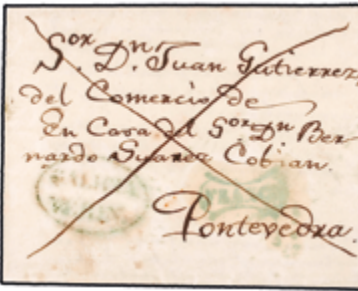 Sor Dn Juan Gutierrez
del Comercio de
En Casa del Sor Dn Ber
nardo Suarez Cobian.
Pontevedra.